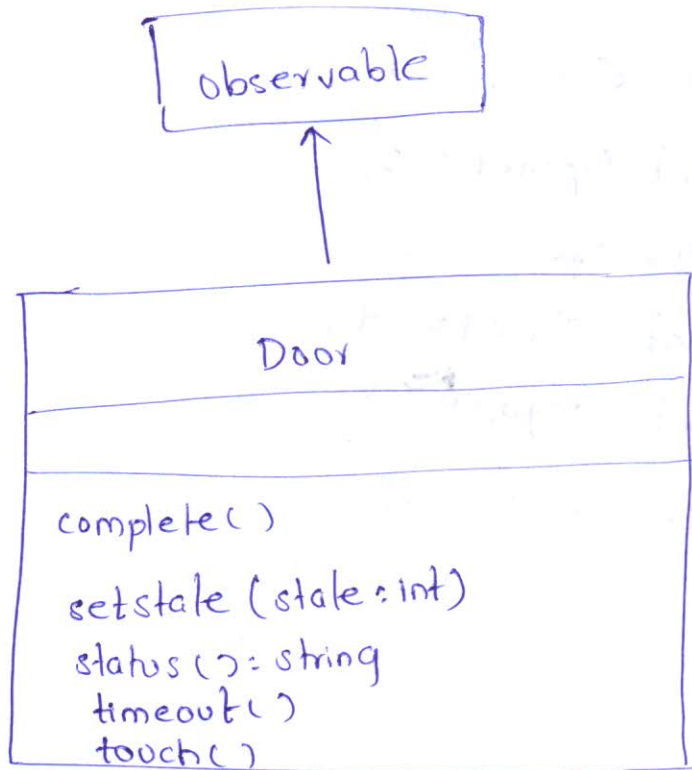 observable
Door
complete()
setstate (state : int)
status() : string
timeout()
touch()